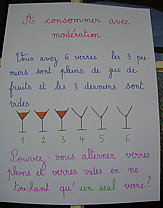 A consommer avec
modération...
Vous avez 6 verres : les 3 pre-
miers sont pleins de jus de
fruits et les 3 derniers sont
vides.
1 2 3 4 5 6
Pouvez-vous alterner verres
pleins et verres vides en ne
touchant qu'un seul verre?